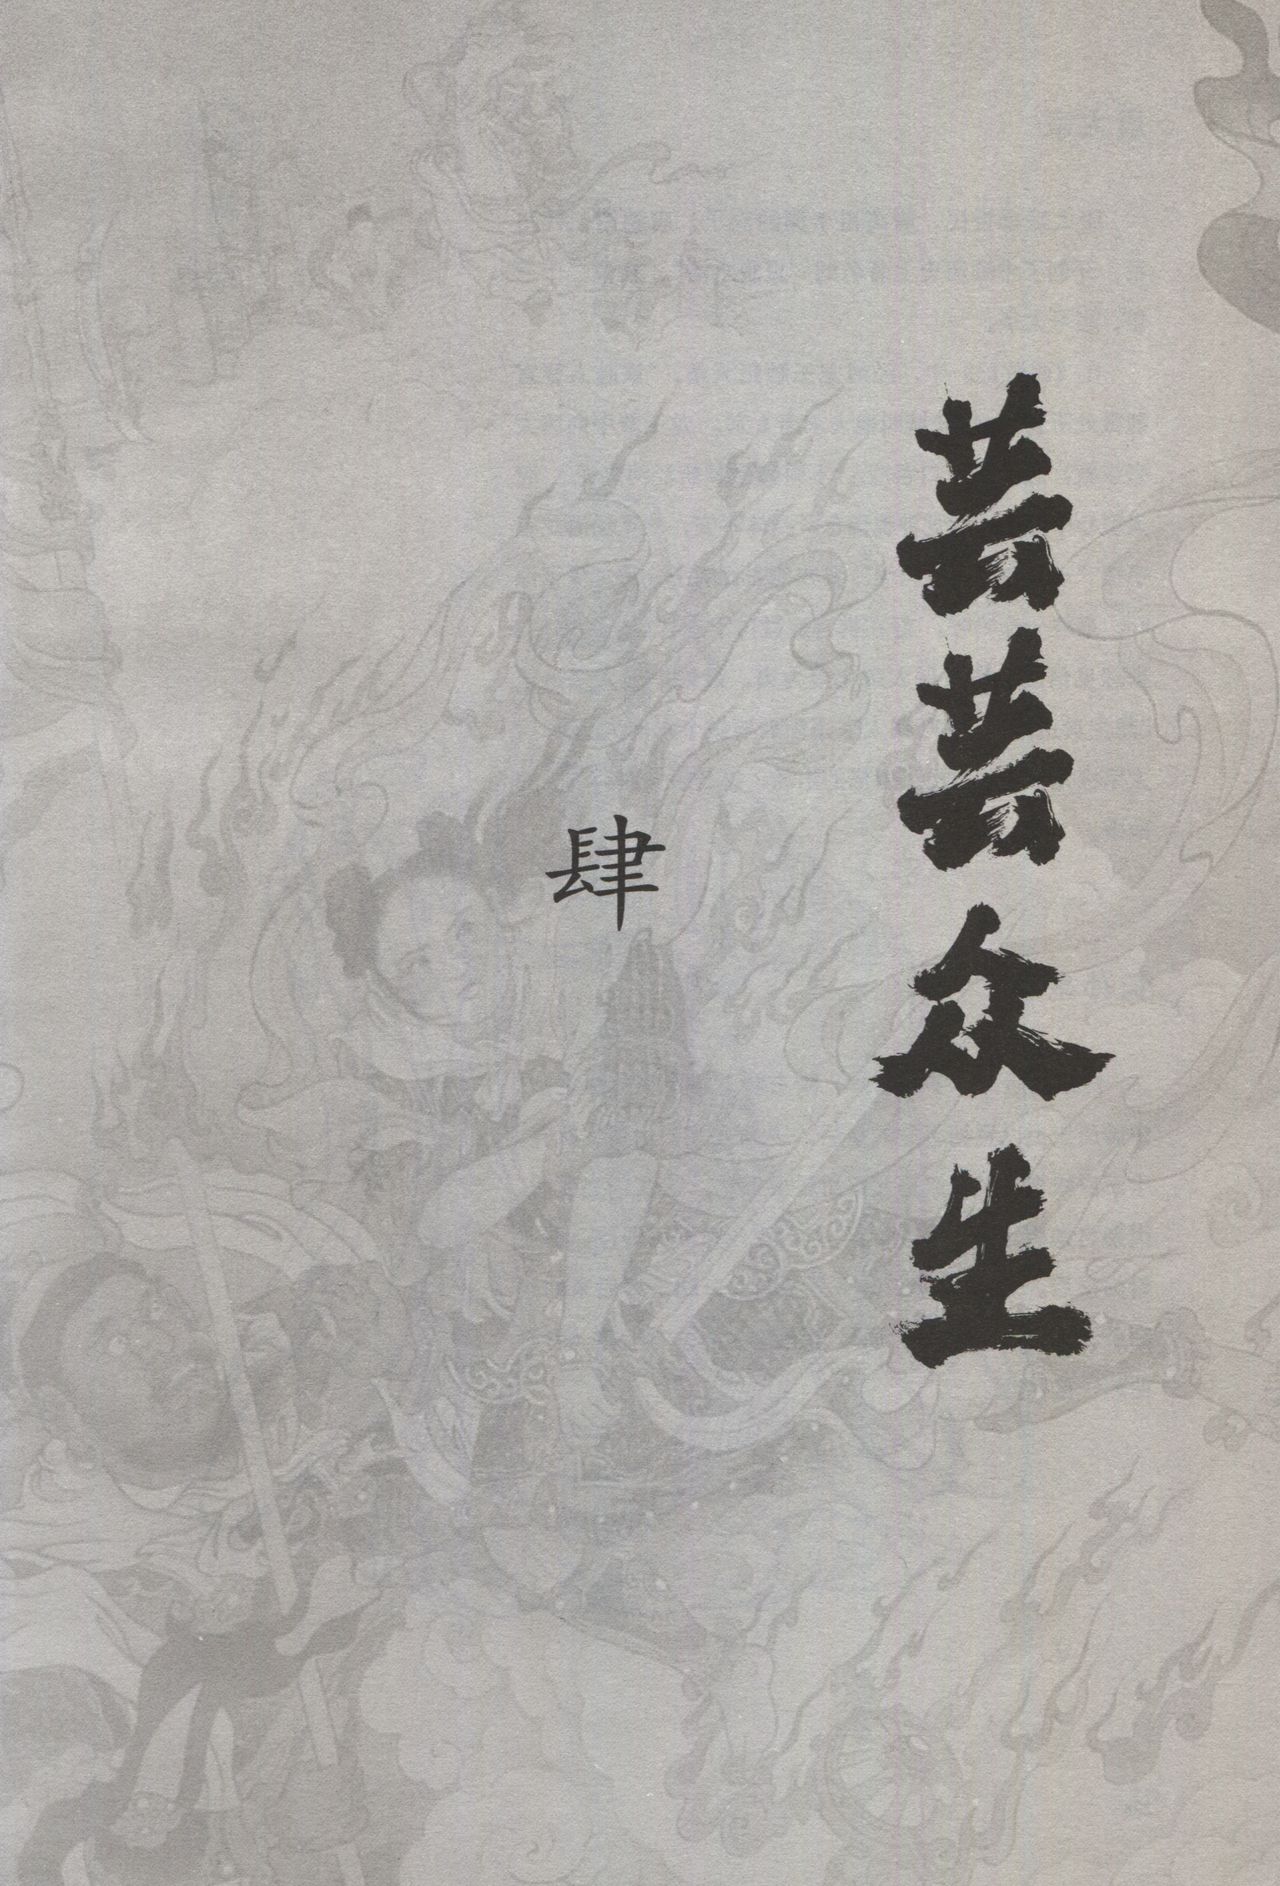 芸芸众生
肆